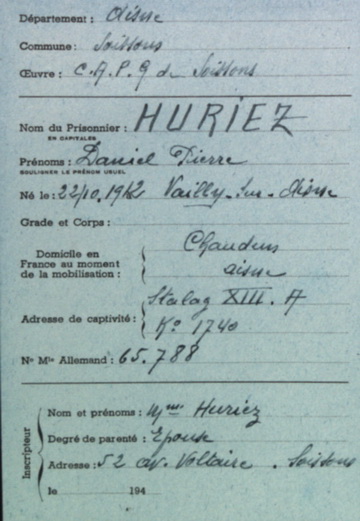 Département : Aisne
Commune : Soissons
Œuvre : C.A.P.G de Soissons
Nom du Prisonnier : HURIEZ
EN CAPITALES
Prénoms : Daniel Pierre
SOULIGNER LE PRÉNOM USUEL
Né le : 22/10.1912 Vailly-Sur-Aisne
Grade et Corps :
Domicile en
France au moment
de la mobilisation :
Chaudun
aisne
Adresse de captivité :
Stalag XIII. A
Ko 1740
No Mle Allemand : 65.788
Inscripteur
Nom et prénoms : Mme Huriez
Degré de parenté : Epouse
Adresse : 52 av. Voltaire . Soissons
le 194